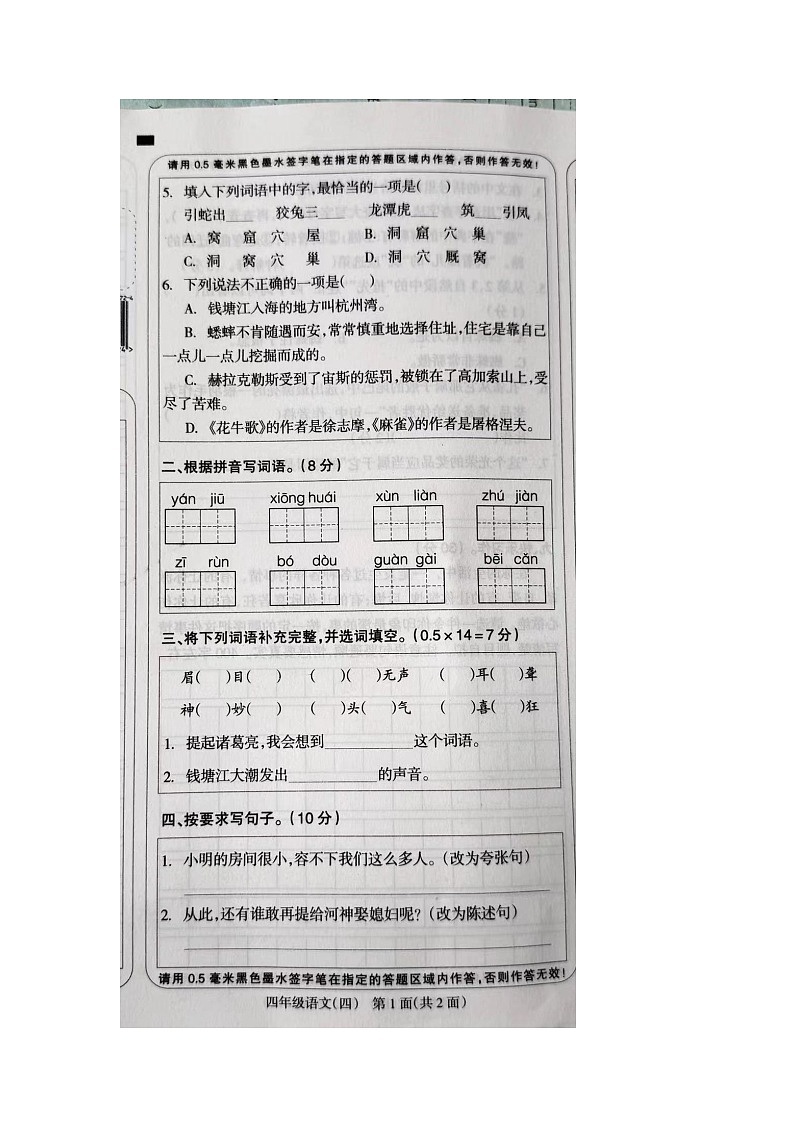 请用 0.5 毫米黑色墨水签字笔在指定的答题区域内作答，否则作答无效！
5. 填入下列词语中的字，最恰当的一项是(　　)
引蛇出____　狡兔三____　龙潭虎____　筑____引凤
A. 窝　窟　穴　屋　B. 洞　窟　穴　巢
C. 洞　窝　穴　巢　D. 洞　穴　厩　窝
6. 下列说法不正确的一项是(　　)
A. 钱塘江入海的地方叫杭州湾。
B. 蟋蟀不肯随遇而安，常常慎重地选择住址，住宅是靠自己
一点儿一点儿挖掘而成的。
C. 赫拉克勒斯受到了宙斯的惩罚，被锁在了高加索山上，受
尽了苦难。
D. 《花牛歌》的作者是徐志摩，《麻雀》的作者是屠格涅夫。
二、根据拼音写词语。（8 分）
yán jiū　xiōng huái　xùn liàn　zhú jiàn
zī rùn　bó dòu　guàn gài　bēi cǎn
三、将下列词语补充完整，并选词填空。（0.5×14＝7 分）
眉(　)目(　)　(　)(　)无声　(　)耳(　)聋
神(　)妙(　)　(　)头(　)气　(　)喜(　)狂
1. 提起诸葛亮，我会想到____________这个词语。
2. 钱塘江大潮发出____________的声音。
四、按要求写句子。（10 分）
1. 小明的房间很小，容不下我们这么多人。（改为夸张句）
2. 从此，还有谁敢再提给河神娶媳妇呢？（改为陈述句）
请用 0.5 毫米黑色墨水签字笔在指定的答题区域内作答，否则作答无效！
四年级语文（四）　第 1 面（共 2 面）